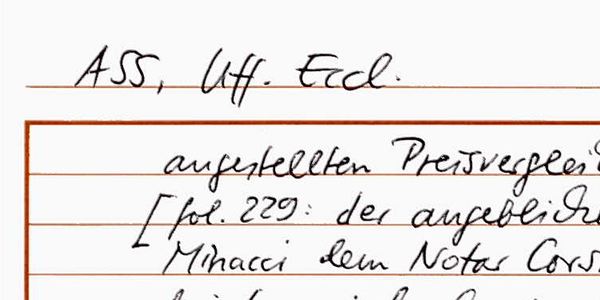 ASS, Uff. Eccl.
angestellten Preisverglei
[fol. 229: der angebliche
Minacci dem Notar Cors.